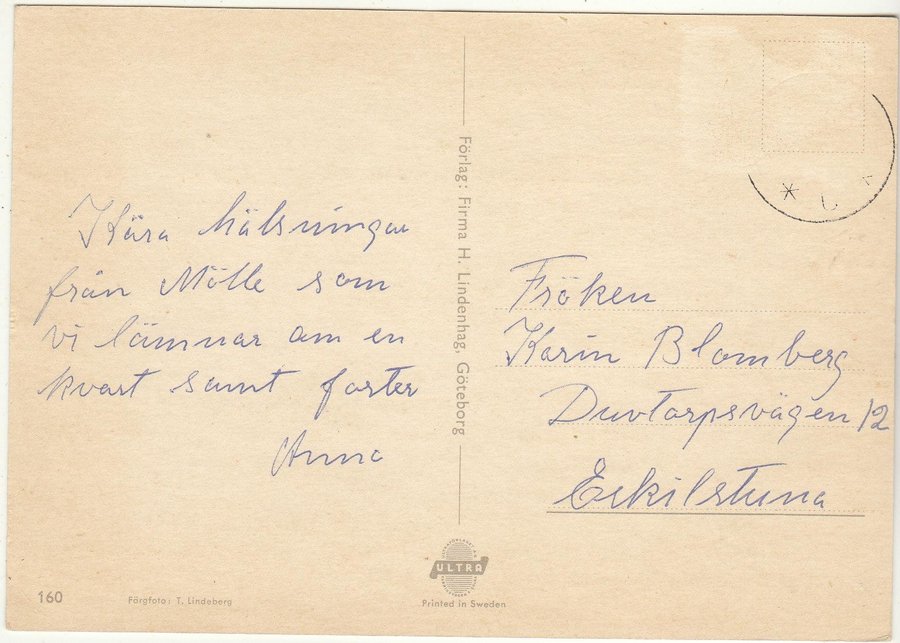 Kära hälsningar
från Mölle som
vi lämnar om en
kvart samt faster
Anna
Förlag: Firma H. Lindenhag, Göteborg
Fröken
Karin Blomberg
Duvtorpsvägen 12
Eskilstuna
ULTRA
Printed in Sweden
160
Färgfoto: T. Lindeberg